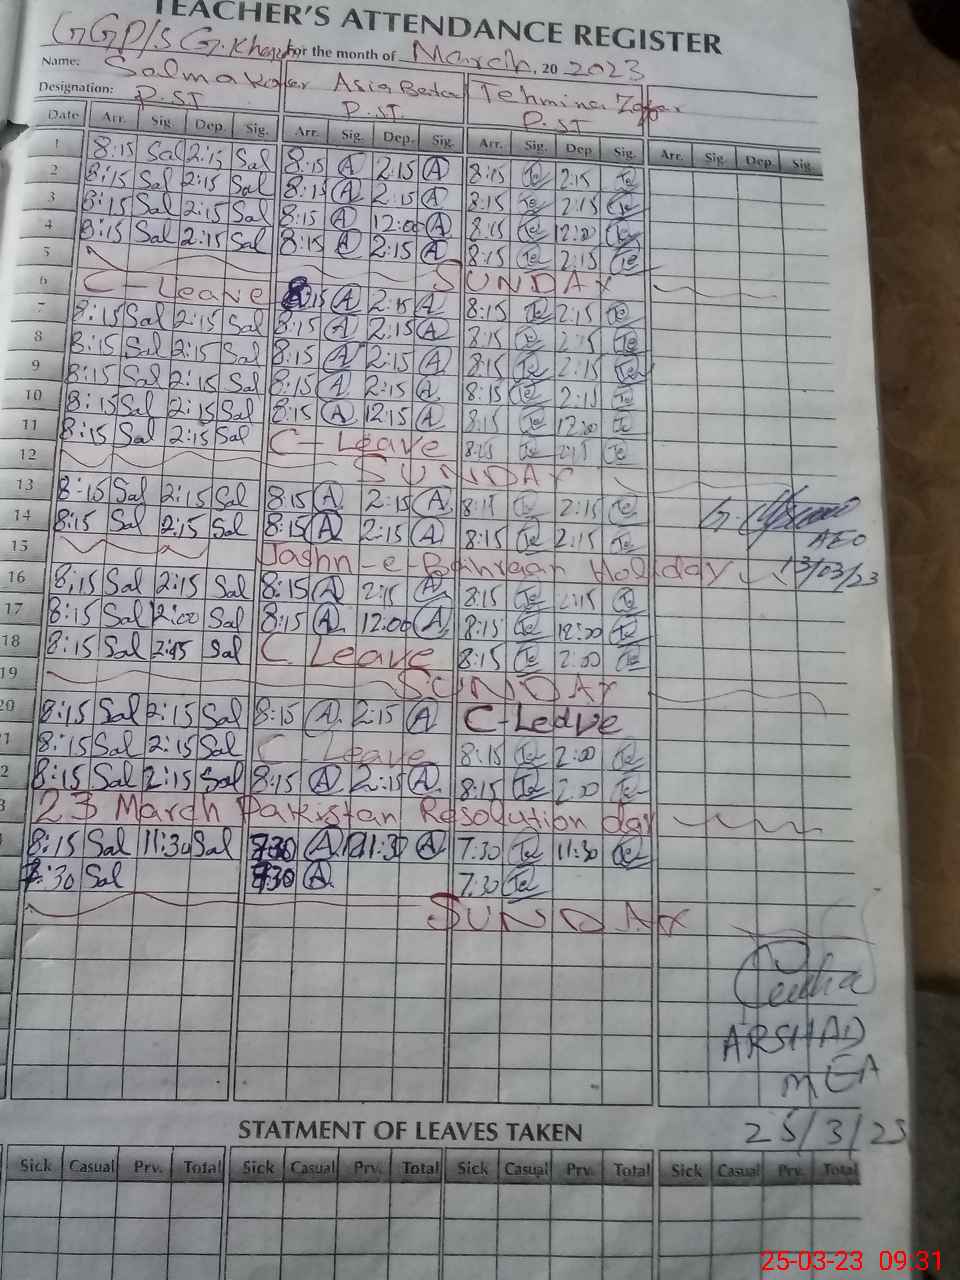 TEACHER'S ATTENDANCE REGISTER
GGP/S G. Khan for the month of March, 20 2023
Name: Salma Asia Tehmina
Designation: P.ST P.ST P.ST
Date Arr. Sig. Dep. Sig. Arr. Sig. Dep. Sig. Arr. Sig. Dep. Sig. Arr. Sig. Dep. Sig.
1 8:15 Sal 2:15 Sal 8:15 A 2:15 A 8:15 Te 2:15 Te
2 8:15 Sal 2:15 Sal 8:15 A 2:15 A 8:15 Te 2:15 Te
3 8:15 Sal 2:15 Sal 8:15 A 12:00 A 8:15 Te 12:00 Te
4 8:15 Sal 2:15 Sal 8:15 A 2:15 A 8:15 Te 2:15 Te
5 SUNDAY
6 C-Leave 8:15 A 2:15 A 8:15 Te 2:15 Te
7 8:15 Sal 2:15 Sal 8:15 A 2:15 A 8:15 Te 2:15 Te
8 8:15 Sal 2:15 Sal 8:15 A 2:15 A 8:15 Te 2:15 Te
9 8:15 Sal 2:15 Sal 8:15 A 2:15 A 8:15 Te 2:15 Te
10 8:15 Sal 2:15 Sal 8:15 A 12:15 A 8:15 Te 12:00 Te
11 8:15 Sal 2:15 Sal C-Leave 8:15 Te 2:15 Te
12 SUNDAY
13 8:15 Sal 2:15 Sal 8:15 A 2:15 A 8:15 Te 2:15 Te
14 8:15 Sal 2:15 Sal 8:15 A 2:15 A 8:15 Te 2:15 Te
AEO
15 Jashn-e- Holiday
13/03/23
16 8:15 Sal 2:15 Sal 8:15 A 2:15 A 8:15 Te 2:15 Te
17 8:15 Sal 12:00 Sal 8:15 A 12:00 A 8:15 Te 12:00 Te
18 8:15 Sal 2:15 Sal C Leave 8:15 Te 2:00 Te
19 SUNDAY
20 8:15 Sal 2:15 Sal 8:15 A 2:15 A C-Leave
1 8:15 Sal 2:15 Sal C Leave 8:15 Te 2:00 Te
2 8:15 Sal 2:15 Sal 8:15 A 2:15 A 8:15 Te 2:00 Te
3 23 March Pakistan Resolution day
8:15 Sal 11:30 Sal 7:30 A 11:30 A 7:30 Te 11:30 Te
7:30 Sal 7:30 A 7:30 Te
SUNDAY
ARSHAD
MEA
25/3/23
STATMENT OF LEAVES TAKEN
Sick Casual Prv. Total Sick Casual Prv. Total Sick Casual Prv. Total Sick Casual Prv. Total
25-03-23 09.31